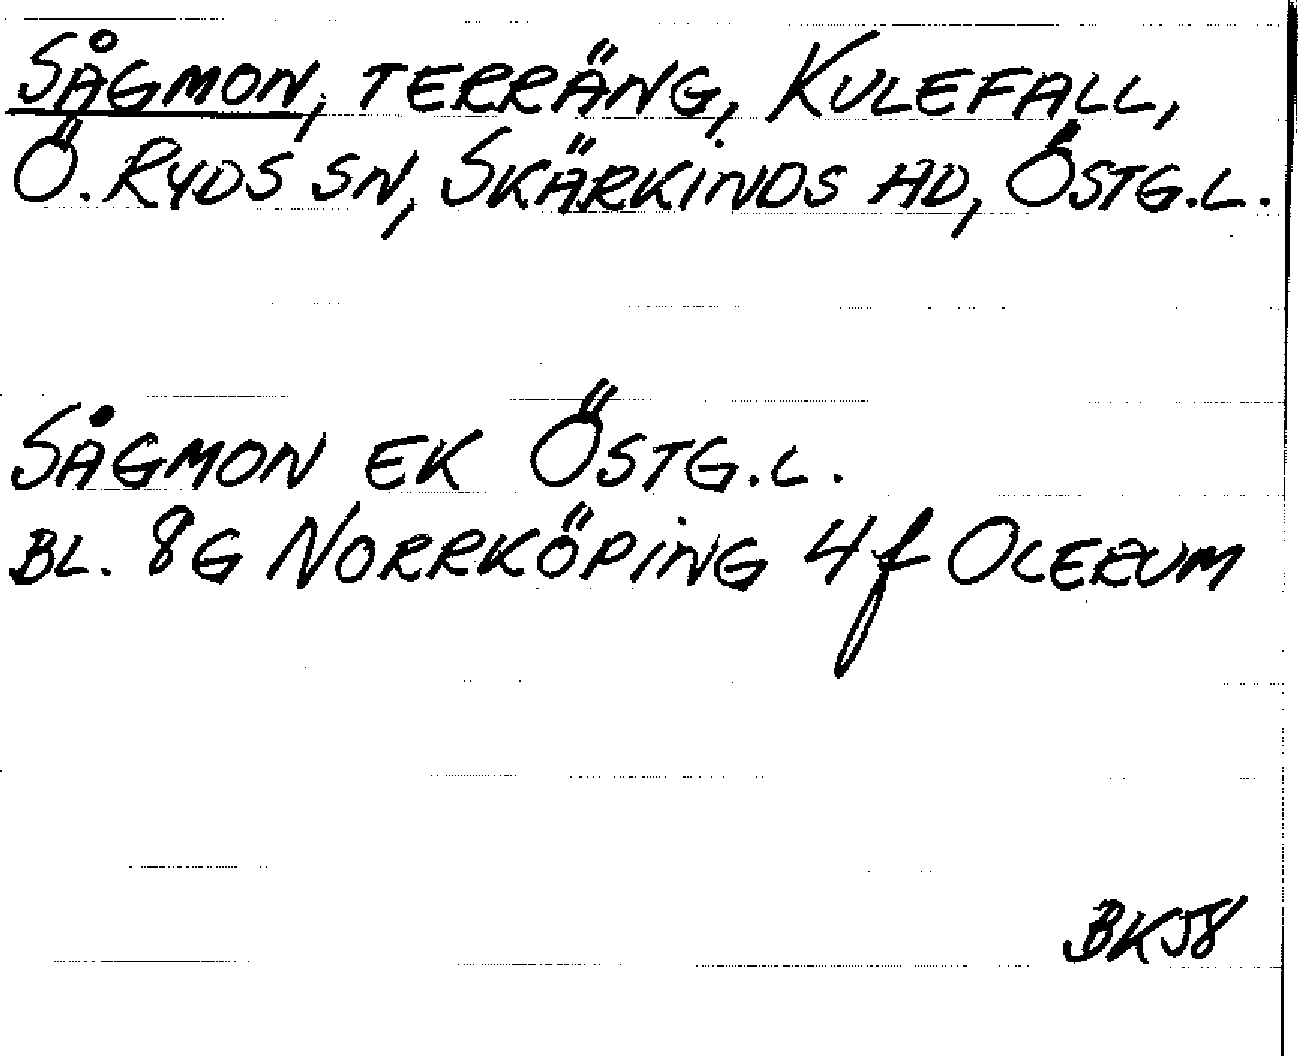 SÅGMON, TERRÄNG, KULEFALL,
Ö. RYDS SN, SKÄRKINDS HD, ÖSTG.L.
SÅGMON EK ÖSTG.L.
BL. 8G NORRKÖPING 4f OLERUM
BK58